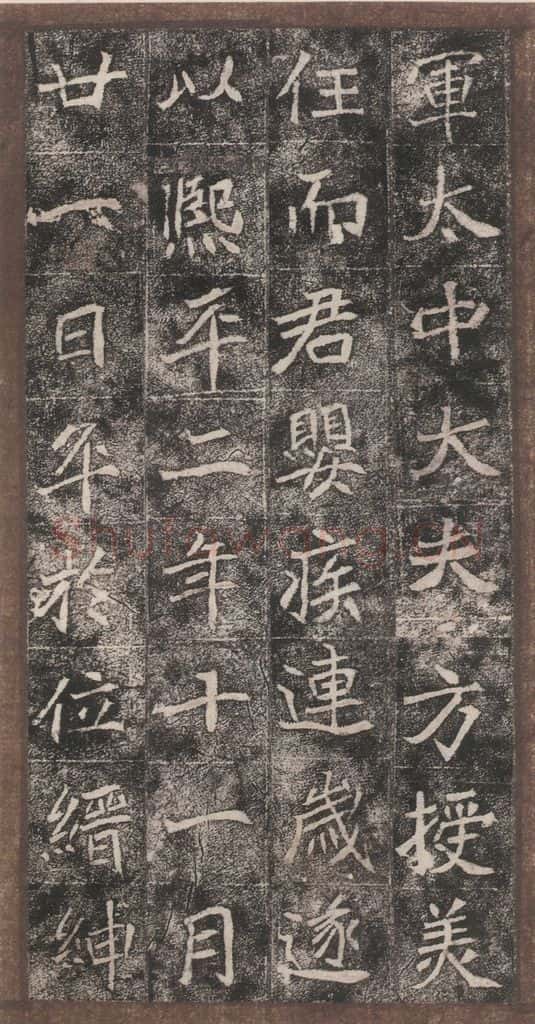 軍太中大夫方授美
任而君嬰疾連歲遂
以熙平二年十一月
廿一日卒於位縉紳
Shufawang.CN